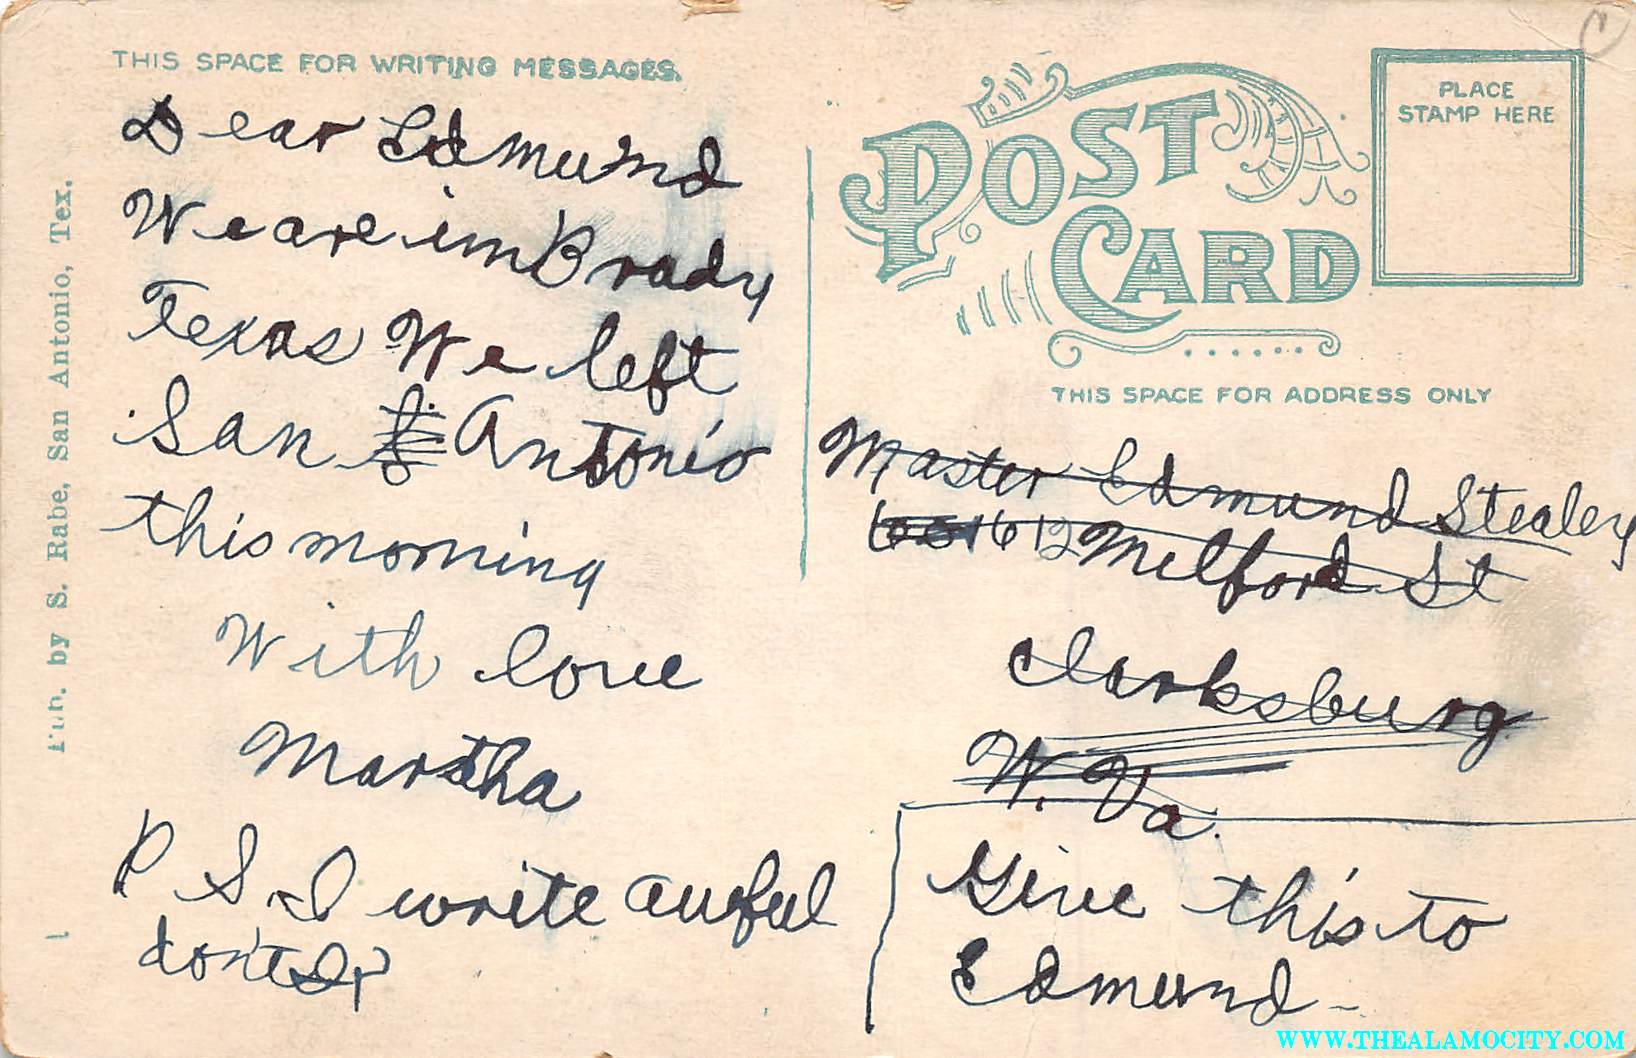 THIS SPACE FOR WRITING MESSAGES.
Dear Edmund
We are in Brady
Texas We left
San Antonio
this morning
With love
Martha
P S I write awful
don't I?
Pub. by S. Rabe, San Antonio, Tex.
POST CARD
PLACE
STAMP HERE
THIS SPACE FOR ADDRESS ONLY
Master Edmund Stealey
612 Milford St
Clarksburg
W. Va.
Give this to
Edmund
WWW.THEALAMOCITY.COM